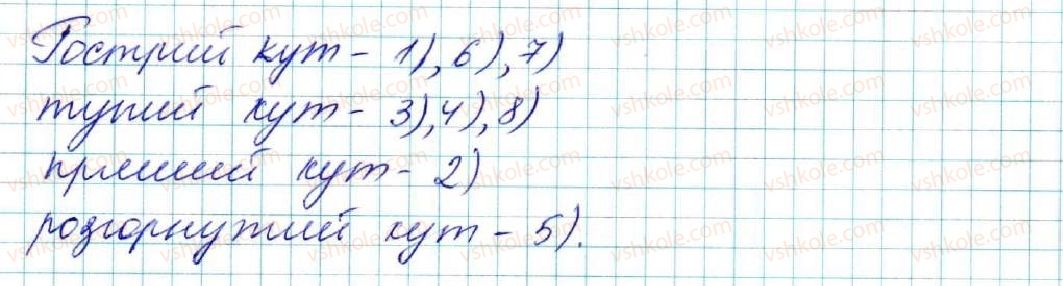 Гострий кут – 1), 6), 7)
тупий кут – 3), 4), 8)
прямий кут – 2)
розгорнутий кут – 5).